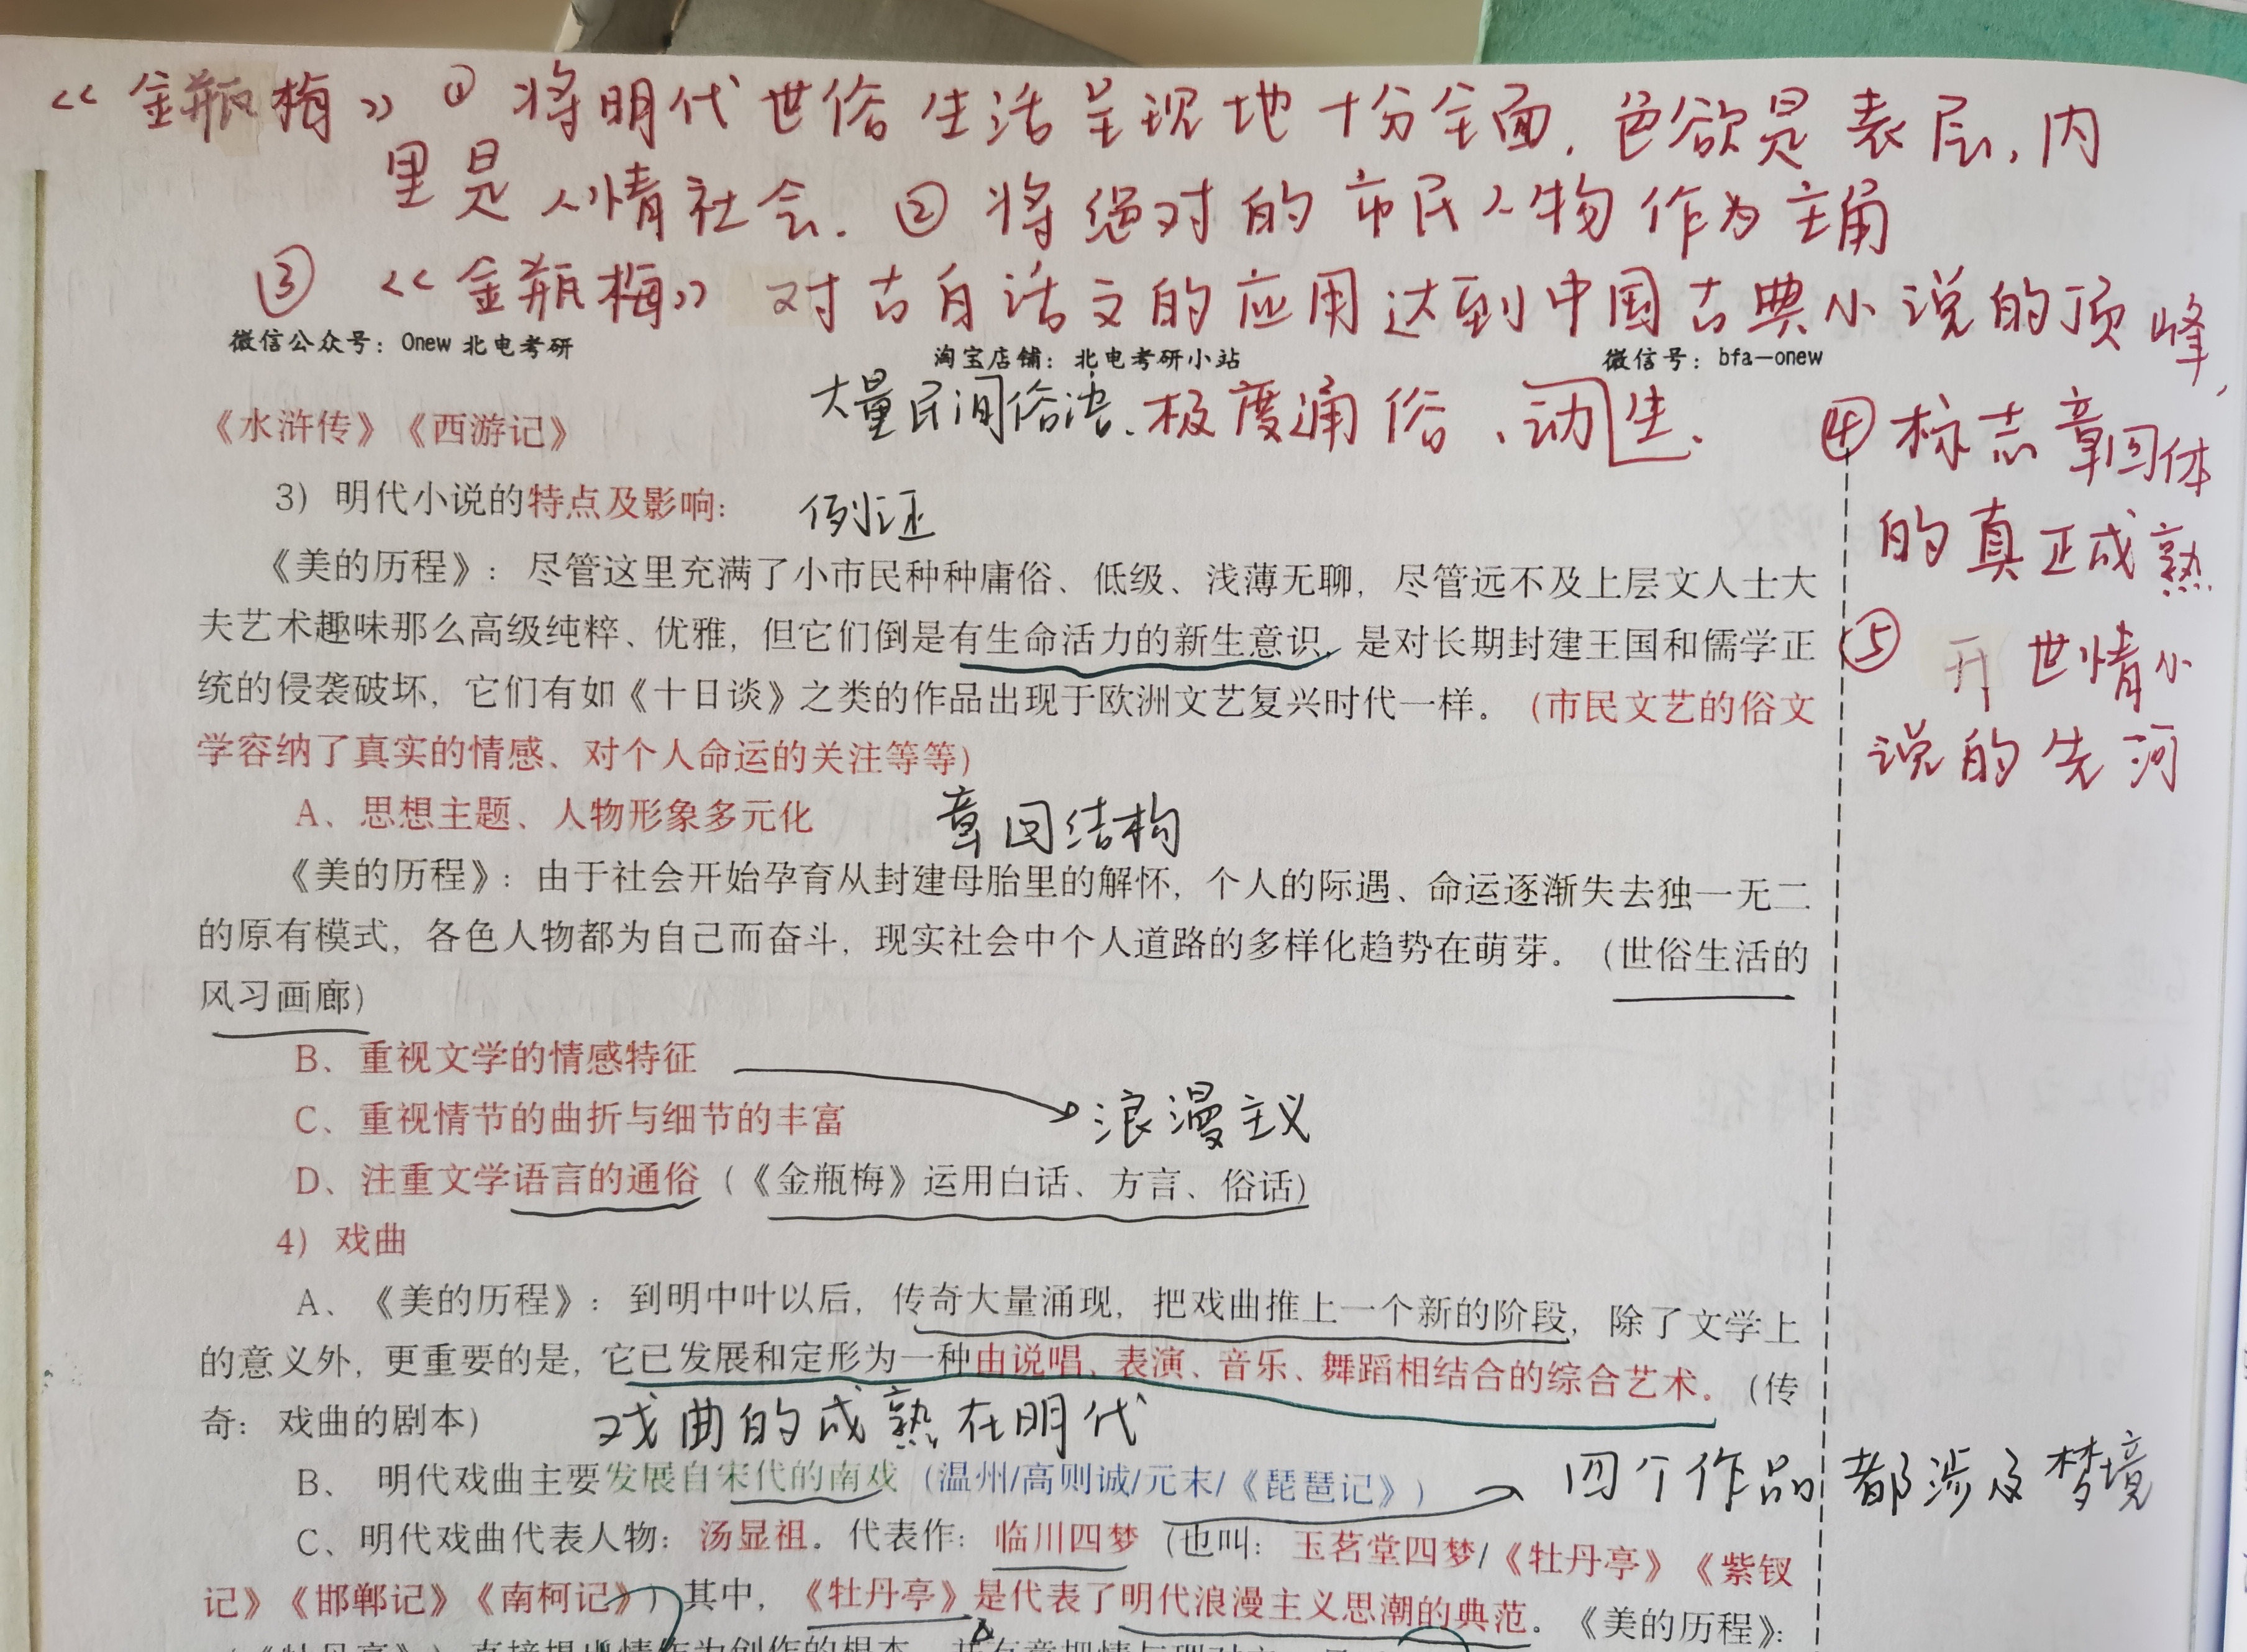 《金瓶梅》① 将明代世俗生活呈现地十分全面,色欲是表层,内
里是人情社会. ② 将绝对的市民人物作为主角
③ 《金瓶梅》对古白话文的应用达到中国古典小说的顶峰,
微信公众号：Onew 北电考研 淘宝店铺：北电考研小站 微信号：bfa—onew
大量民间俗语、极度通俗、动生、
④ 标志章回体
的真正成熟
⑤ 开世情小
说的先河
《水浒传》《西游记》
3）明代小说的特点及影响： 例证
《美的历程》：尽管这里充满了小市民种种庸俗、低级、浅薄无聊，尽管远不及上层文人士大
夫艺术趣味那么高级纯粹、优雅，但它们倒是有生命活力的新生意识，是对长期封建王国和儒学正
统的侵袭破坏，它们有如《十日谈》之类的作品出现于欧洲文艺复兴时代一样。（市民文艺的俗文
学容纳了真实的情感、对个人命运的关注等等）
A、思想主题、人物形象多元化 章回结构
《美的历程》：由于社会开始孕育从封建母胎里的解怀，个人的际遇、命运逐渐失去独一无二
的原有模式，各色人物都为自己而奋斗，现实社会中个人道路的多样化趋势在萌芽。（世俗生活的
风习画廊）
B、重视文学的情感特征
C、重视情节的曲折与细节的丰富 浪漫主义
D、注重文学语言的通俗（《金瓶梅》运用白话、方言、俗话）
4）戏曲
A、《美的历程》：到明中叶以后，传奇大量涌现，把戏曲推上一个新的阶段，除了文学上
的意义外，更重要的是，它已发展和定形为一种由说唱、表演、音乐、舞蹈相结合的综合艺术。（传
奇：戏曲的剧本） 戏曲的成熟在明代
B、 明代戏曲主要发展自宋代的南戏（温州/高则诚/元末/《琵琶记》） 四个作品都涉及梦境
C、明代戏曲代表人物：汤显祖。代表作：临川四梦（也叫：玉茗堂四梦/《牡丹亭》《紫钗
记》《邯郸记》《南柯记》）其中，《牡丹亭》是代表了明代浪漫主义思潮的典范。《美的历程》：